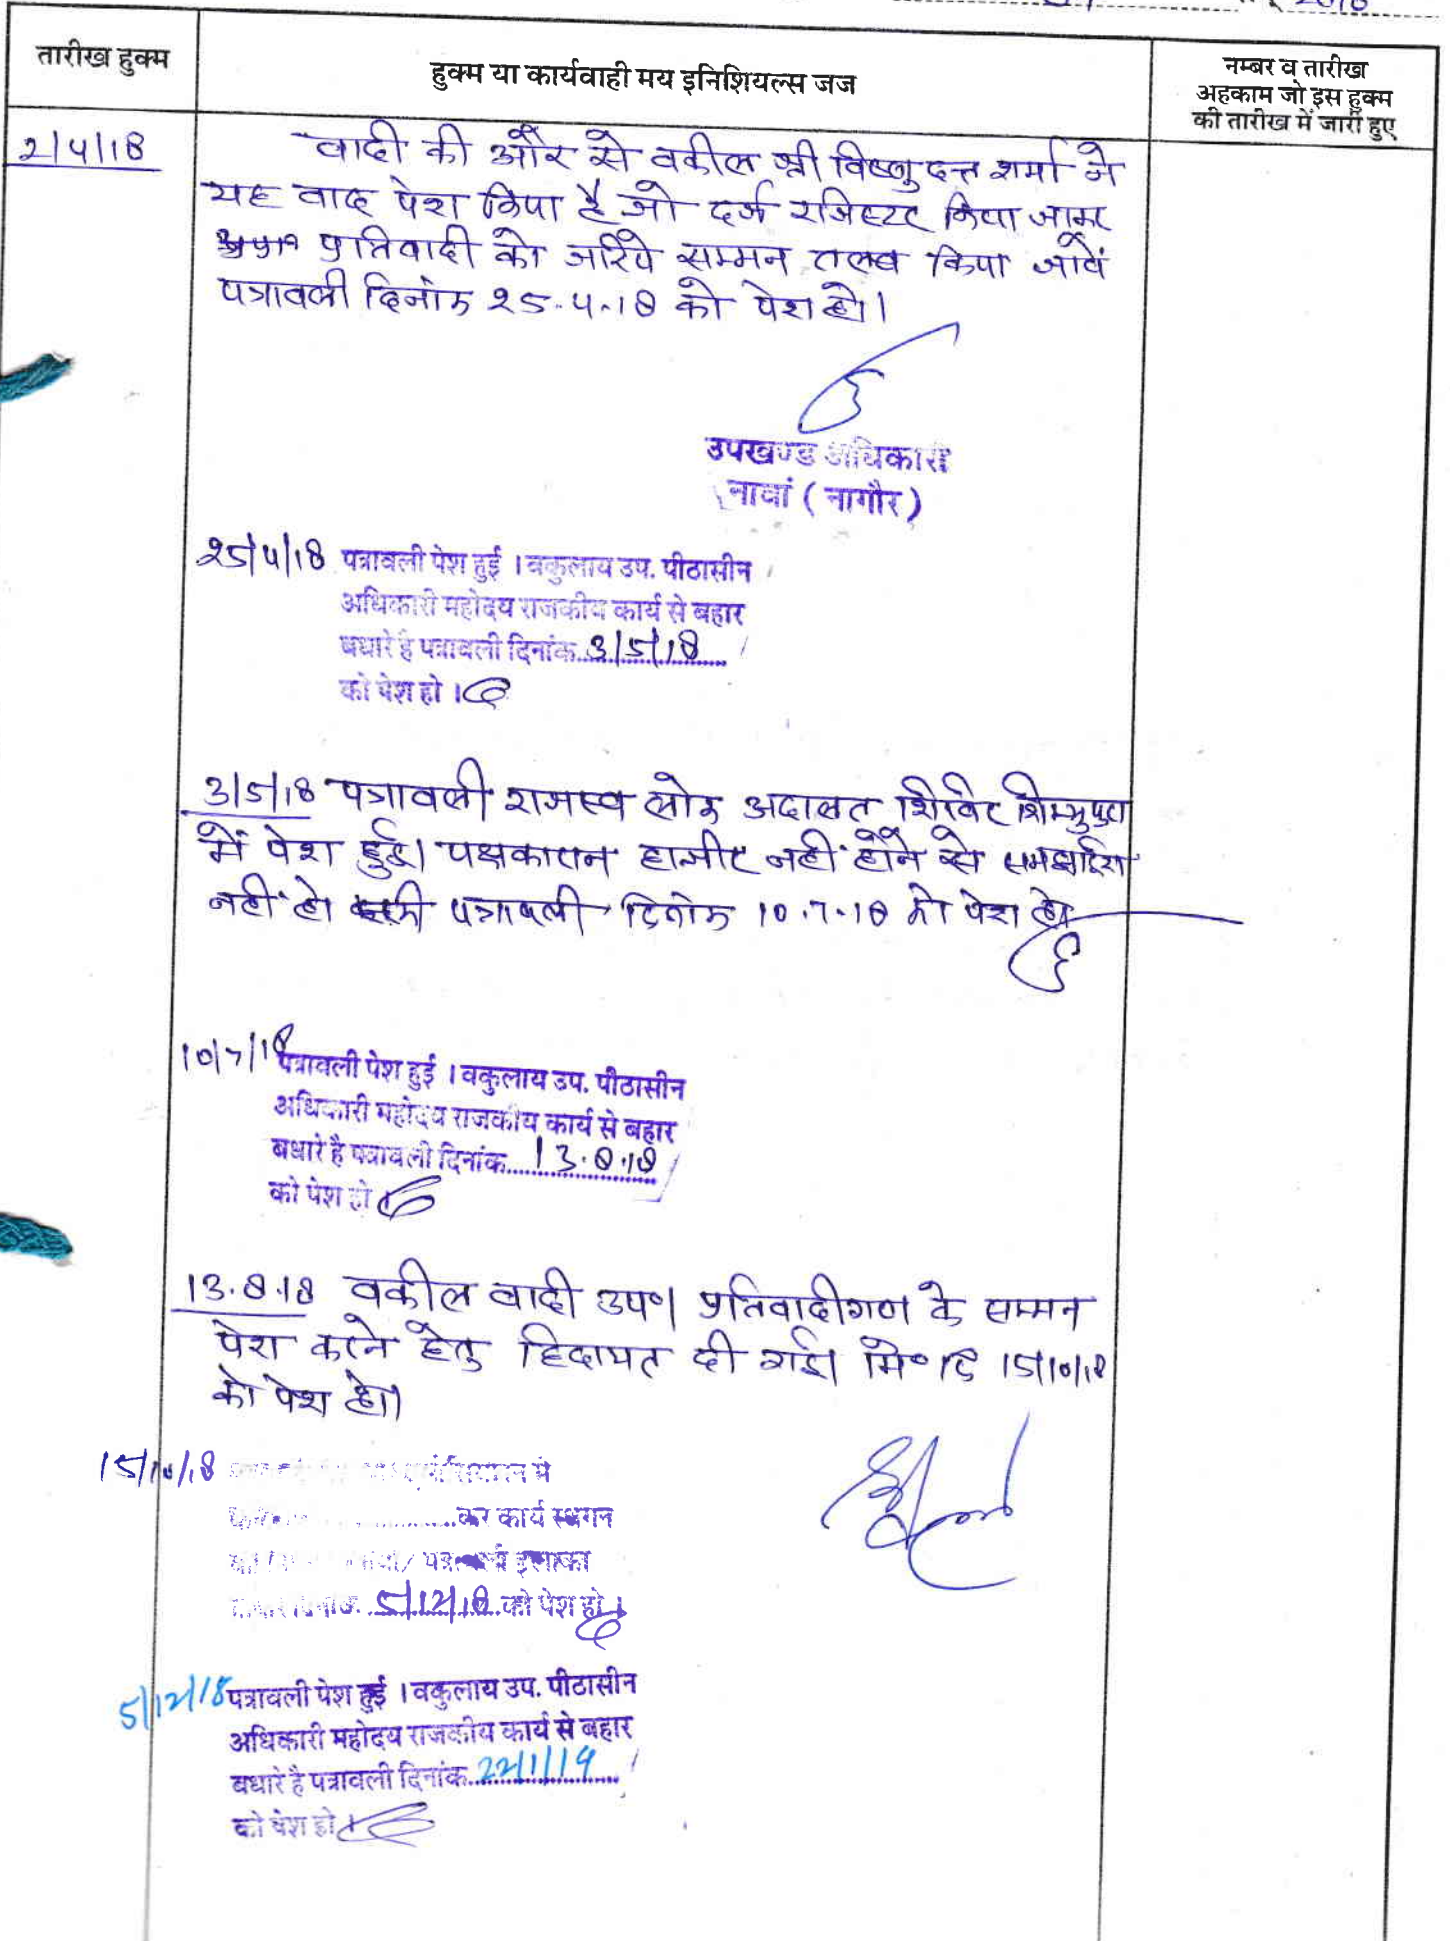 2018
तारीख हुक्म
हुक्म या कार्यवाही मय इनिशियल्स जज
नम्बर व तारीख
अहकाम जो इस हुक्म
की तारीख में जारी हुए
2/4/18
वादी की और से वकील श्री विष्णुदत्त शर्मा ने
यह वाद पेश किया है जो दर्ज रजिस्टर किया जाकर
प्रतिवादी को जरिये सम्मन तलब किया जावें
पत्रावली दिनांक 25.4.18 को पेश हो।
उपखण्ड अधिकारी
नावां (नागौर)
25/4/18 पत्रावली पेश हुई । वकुलाय उप. पीठासीन
अधिकारी महोदय राजकीय कार्य से बहार
बधारे है पत्रावली दिनांक 3/5/18
को पेश हो ।
3/5/18 पत्रावली राजस्व लोक अदालत शिविर
में पेश हुई। पक्षकारान हाजीर नहीं होने से समझाईश
नहीं हो पत्रावली दिनांक 10.7.18 को पेश हो
10/7/18 पत्रावली पेश हुई । वकुलाय उप. पीठासीन
अधिकारी महोदय राजकीय कार्य से बहार
बधारे है पत्रावली दिनांक 13.8.18
को पेश हो ।
13.8.18 वकील वादी उप०। प्रतिवादीगण के सम्मन
पेश करने हेतु हिदायत दी गई। मि० दि 15/10/18
को पेश हो।
15/10/18 में
कर कार्य स्थगन
इलाका
5/12/18 को पेश हो ।
5/12/18 पत्रावली पेश हुई । वकुलाय उप. पीठासीन
अधिकारी महोदय राजकीय कार्य से बहार
बधारे है पत्रावली दिनांक 22/1/19
को पेश हो ।